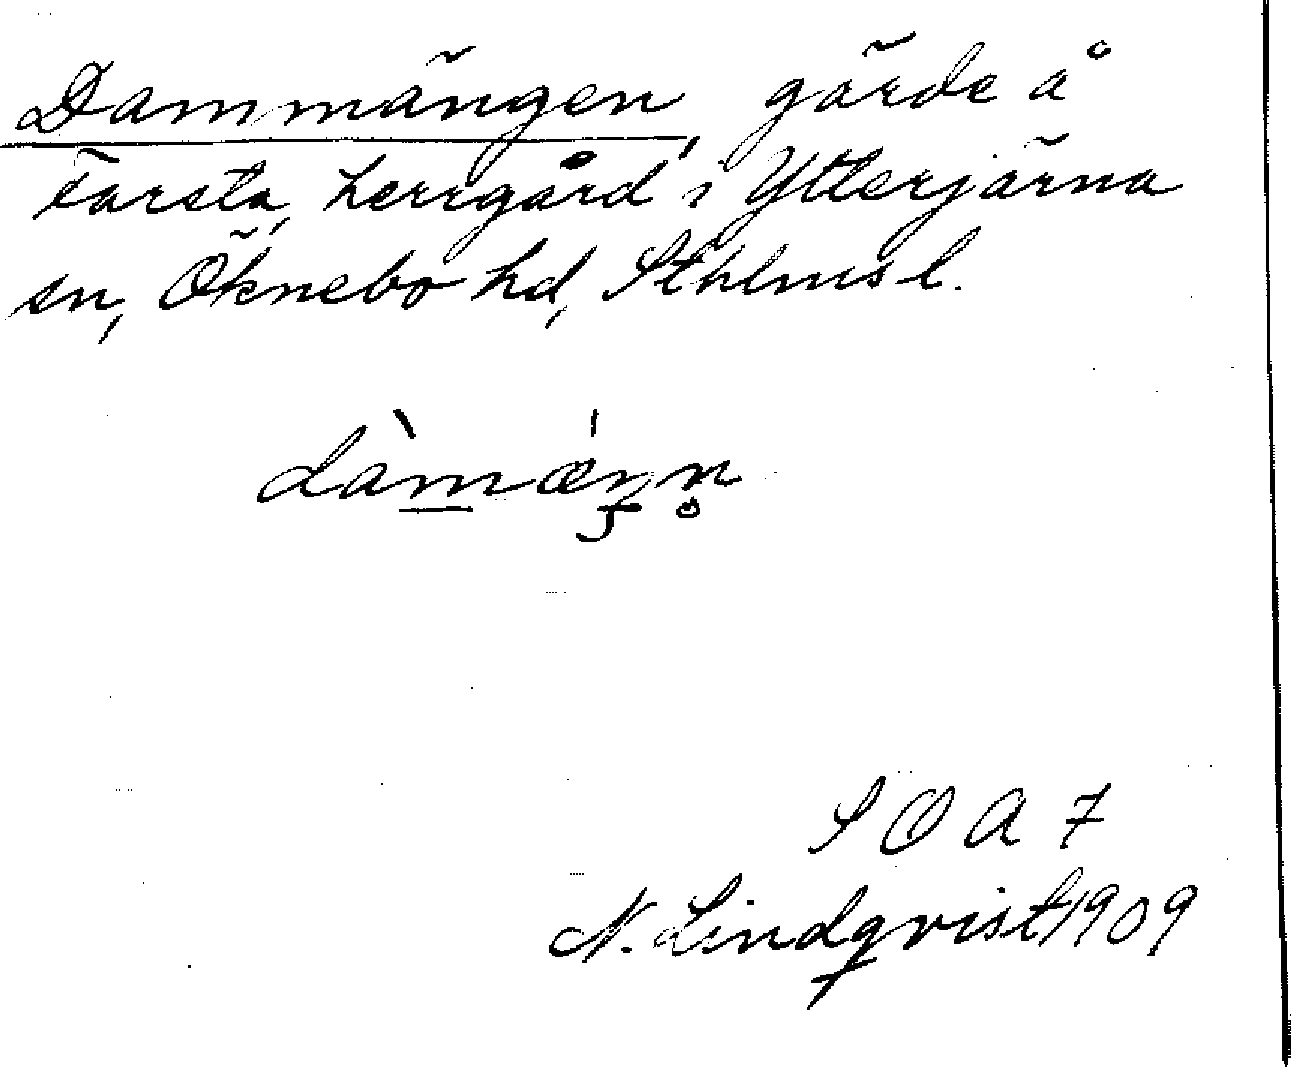 Dammängen, gärde å
Farsta, herrgård i Ytterjärna
sn, Öknebo hd, Sthlms l.
SOA 7
N. Lindqvist 1909